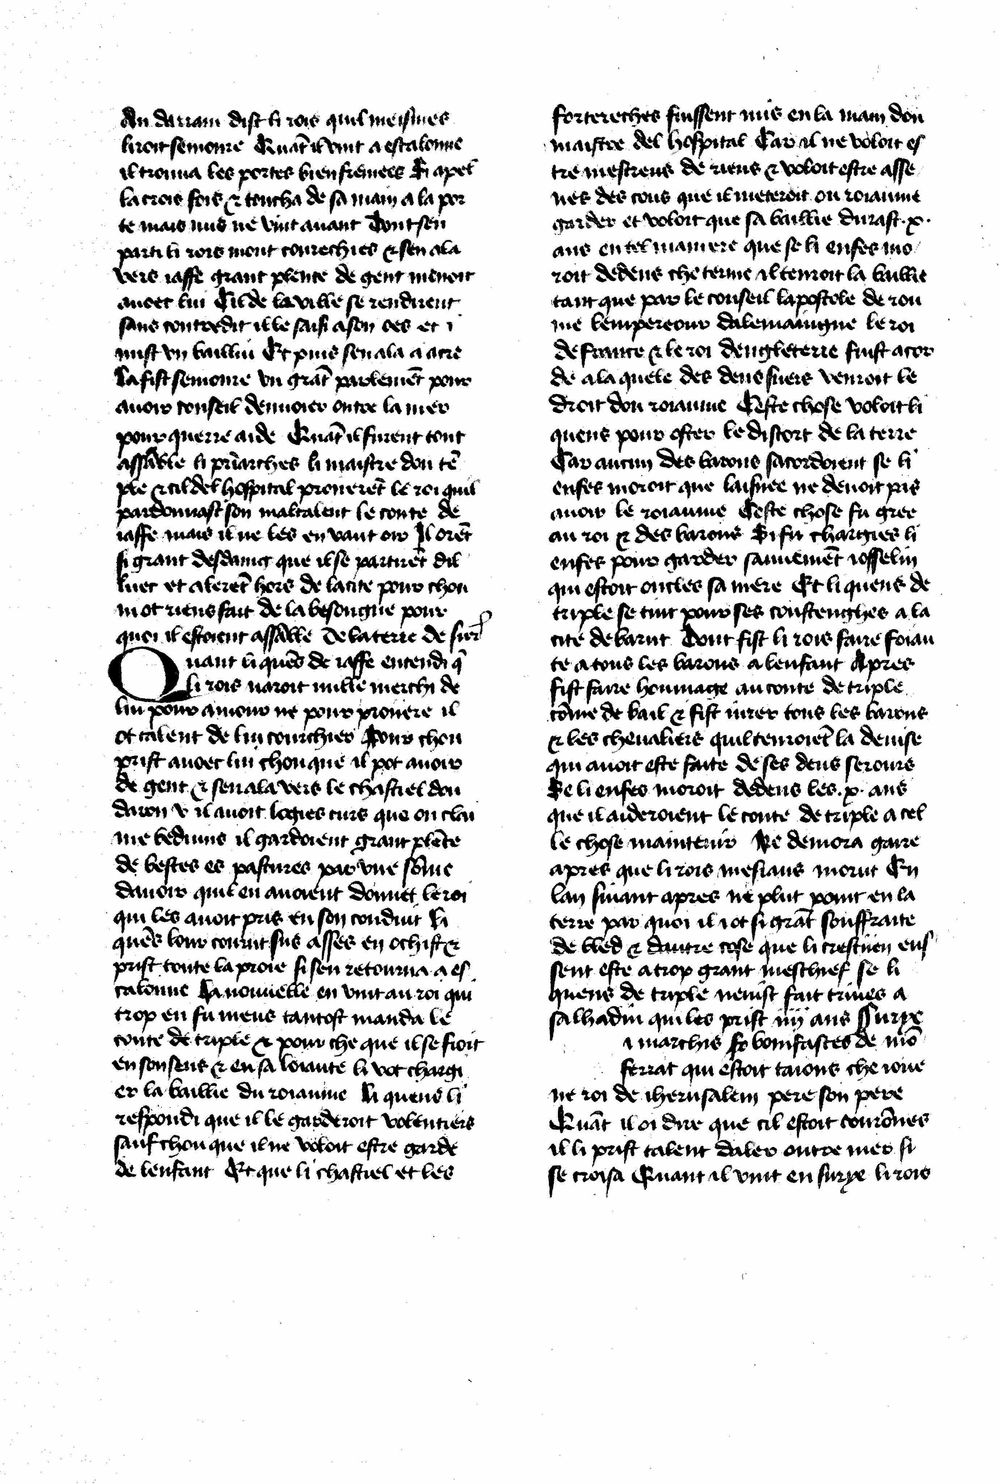 An darrain dist li rois quil meismes
liroit semonre Quāt il vint a escalonne
il trouua les portes bien fremees Si apel
la trois fois & toucha de sa main a la por
te mais nus ne vint auant Dont sen
parti li rois mout courechies & sen ala
vers iaffe grant plente de gent menoit
auoec lui Cil de la ville se rendirent
sans contredit il le saisi a son oes et i
mist vn bailliu Et puis sen ala a acre
La fist semonre vn grāt parlemēt pour
auoir conseil denuoier outre la mer
pour querre aide Quāt il furent tout
assāble li pr̄iarches li maistre dou tē
ple & cil del hospital proierēt le roi quil
pardonnast son maltalent le conte de
iaffe mais il ne les en vaut oir Il orēt
si grant desdaing que il se partirēt dil
luec et alerēt hors de la cite pour chou
ni ot riens fait de la besongne pour
quoi il estoient assāble De la terre de surie
Quant li quēs de iaffe entendi q̄
li rois naroit nulle merchi de
lui pour amour ne pour proiiere il
ot talent de lui courchier Pour chou
prist auoec lui chou que il pot auoir
de gent & sen ala vers le chastiel dou
daron v il auoit logies turs que on clai
me beduins il gardoient grant plēte
de bestes es pastures par vne sōme
dauoir quil en auoient donnet le roi
qui les auoit pris en son conduit Li
quēs lour courut sus asses en ochist &
prist toute la proie si sen retourna a es
calonne La nouuelle en vint au roi qui
trop en fu meus tantost manda le
conte de triple & pour che que il se fioit
en son sens & en sa loiaute li vot chargi
er la baillie du roiaume Li quens li
respondi que il le garderoit volentiers
sauf chou que il ne voloit estre garde
de lenfant Et que li chastiel et les
fortereches fuissent mis en la main dou
maistre del hospital Car il ne voloit es
tre mescreus de riens & voloit estre asse
nes des cous que il meteroit ou roiaume
garder et voloit que sa baillie durast .x.
ans en tel maniere que se li enfes mo
roit dedens che terme il tenroit la baillie
tant que par le conseil lapostole de rou
me lempereour dalemaingne le roi
de france & le roi dengleterre fuist acor
de a la quele des deus suers venroit le
droit dou roiaume Ceste chose voloit li
quens pour oster le discort de la terre
Car aucun des barons sacordoient se li
enfes moroit que laisnee ne deuoit pas
auoir le roiaume Ceste chose fu gree
au roi & des barons Si fu chargies li
enfes pour garder sauuemēt iosselin
qui estoit oncles sa mere Et li quens de
triple se tint pour ses coustenghes a la
cite de barut Dont fist li rois faire foiau
te a tous les barons a lenfant Apres
fist faire hommage au conte de triple
cōme de bail & fist iurer tous les barons
& les cheualiers quil tenroiēt la deuise
qui auoit este faite de ses deus serours
Se li enfes moroit dedens les .x. ans
que il aideroient le conte de triple a cel
le chose maintenir Ne demora gaire
apres que li rois mesiaus morut En
lan siuant apres ne plut point en la
terre par quoi il i ot si grāt souffraite
de bled & dautre cose que li crestiien eus
sent este a trop grant meschief se li
quens de triple neuist fait triues a
salhadin qui les prist iiij ans Surye
i marchis fo bonifasces de mō
ferrat qui estoit taions che ioue
ne roi de iherusalem pere son pere
Quāt il oi dire que cil estoit courōnes
il li prist talent daler outre mer si
se croisa Quant il vint en surye li rois